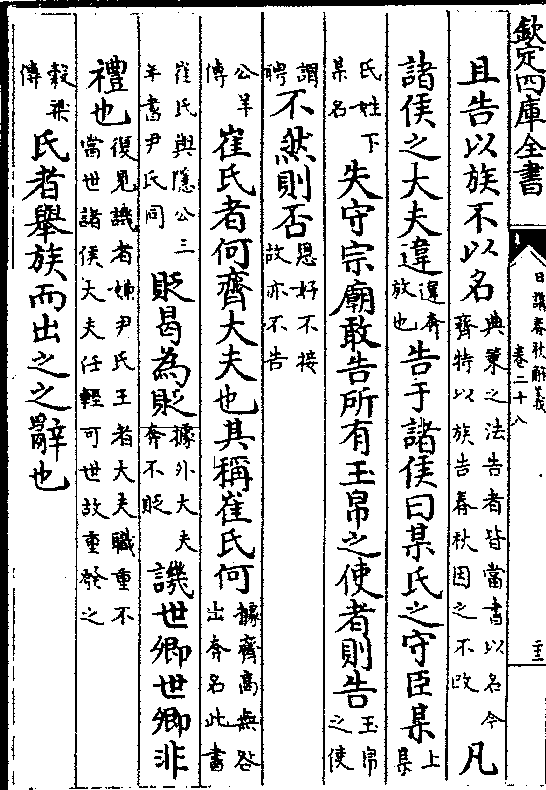 欽定四庫全書
日講春秋解義
卷二十八
且告以族不以名典策之法告者皆當書以名今齊特以族告春秋因之不改凡
諸侯之大夫違違奔放也告于諸侯曰某氏之守臣某上某
氏姓下某名失守宗廟敢告所有玉帛之使者則告玉帛之使
謂聘不然則否恩好不接故亦不告
公羊傳崔氏者何齊大夫也其稱崔氏何據齊高無咎出奔名此書
崔氏與隱公三年書尹氏同貶曷為貶據外大夫奔不貶譏世卿世卿非
禮也復見譏者嫌尹氏王者大夫職重不當世諸侯大夫任輕可世故重發之
穀梁傳氏者舉族而出之之辭也